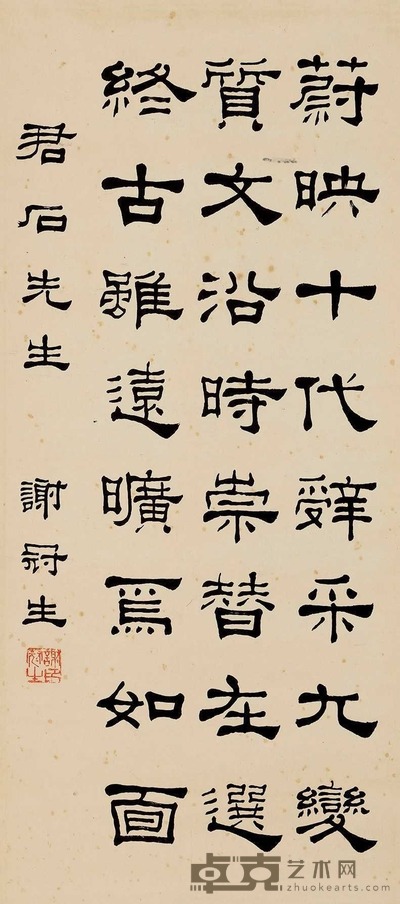 蔚映十代辭采九變
質文沿時崇替在選
終古雖遠曠焉如面
君石先生 謝冠生
謝冠生印
卓克艺术网
zhuokearts.com